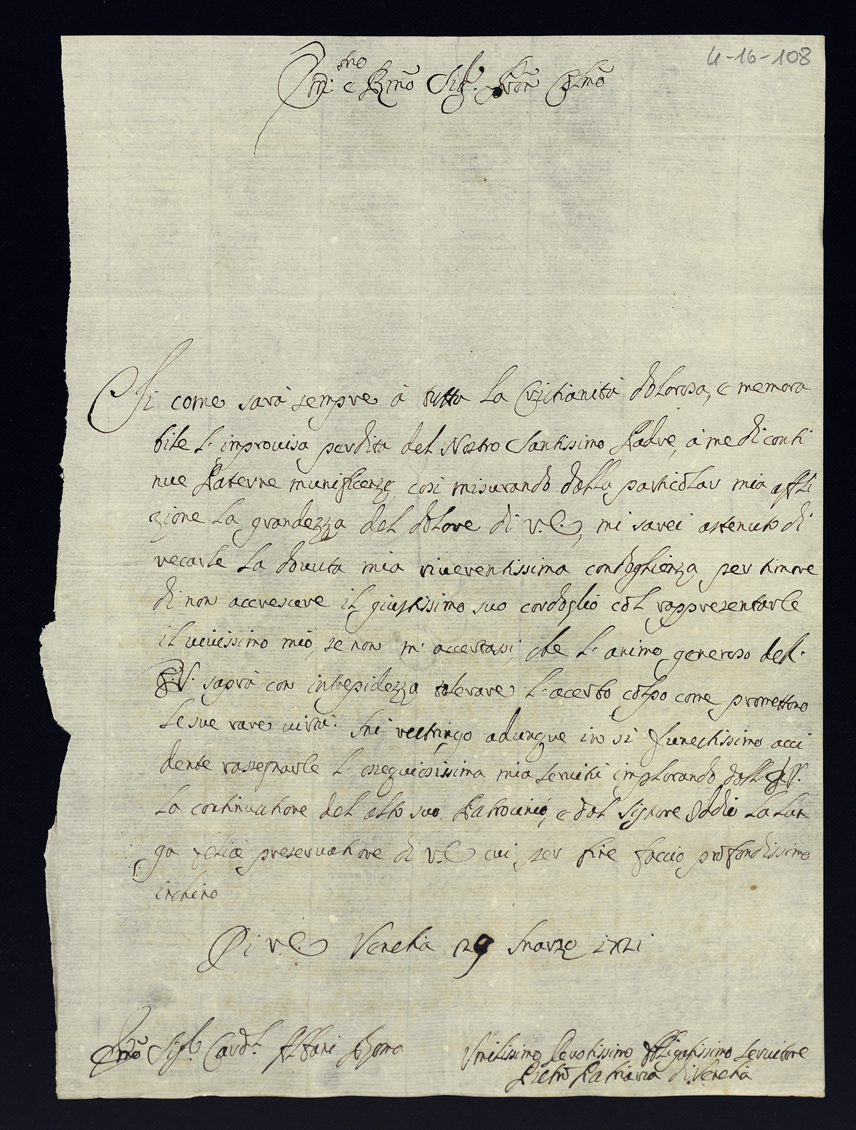 4-16-108
Em:mo e Rmo Sigr. Pron Colmo
Si come sarà sempre à tutta la Cristianità dolorosa, e memora
bile l'improvisa perdita del Nostro Santissimo Padre, à me di conti
nue Paterne munificenze, così misurando dalla particolar mia affli
zione la grandezza del dolore di V.E., mi sarei astenuto di
recarle la dovuta mia riverentissima condoglienza per timore
di non accrescere il giustissimo suo cordoglio col rappresentarle
il vivissimo mio, se non m'accertassi, che l'animo generoso dell'
E.V. saprà con intrepidezza tolerare l'acerbo colpo come promettono
le sue rare virtù. Mi restringo adunque in sì funestissimo acci
dente rassegnarle l'ossequiosissima mia servitù implorando dall'E.V.
la continuatione del alto suo Patrocinio, e dal Signore Iddio la lun
ga felice preservatione di V.E. cui per fine faccio profondissimo
inchino
Di V.E. Venetia 29 Marzo 1721
Emo Sigr. Cardl. Albani Roma
Umilissimo Devotissimo Obligatissimo Servitore
Pietro Patriarca di Venetia